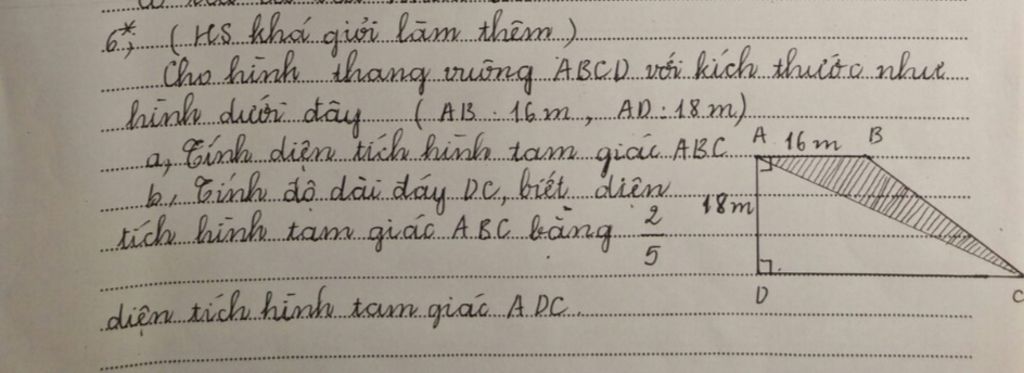 6*, (HS khá giỏi làm thêm)
Cho hình thang vuông ABCD với kích thước như
hình dưới đây (AB : 16m, AD : 18m)
a, Tính diện tích hình tam giác ABC
b, Tính độ dài đáy DC, biết diện
tích hình tam giác ABC bằng 2/5
diện tích hình tam giác ADC.
A 16m B
18m
D C